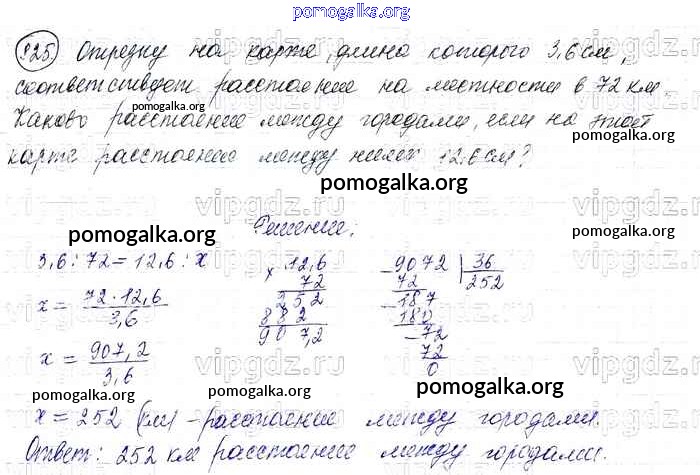 pomogalka.org
825. Отрезку на карте, длина которого 3,6 см,
соответствует расстояние на местности в 72 км.
pomogalka.org
Каково расстояние между городами, если на этой
pomogalka.org
карте расстояние между ними 12,6 см?
pomogalka.org
vipgdz.ru vipgdz.ru vipgdz.ru
Решение:
pomogalka.org
3,6 : 72 = 12,6 : x
x = 72 · 12,6 / 3,6
x = 907,2 / 3,6
× 12,6
72
252
882
907,2
- 9072 | 36
72 252
- 187
180
- 72
72
0
pomogalka.org
pomogalka.org
pomogalka.org
x = 252 (км) - расстояние между городами.
Ответ: 252 км расстояние между городами.
pomogalka.org